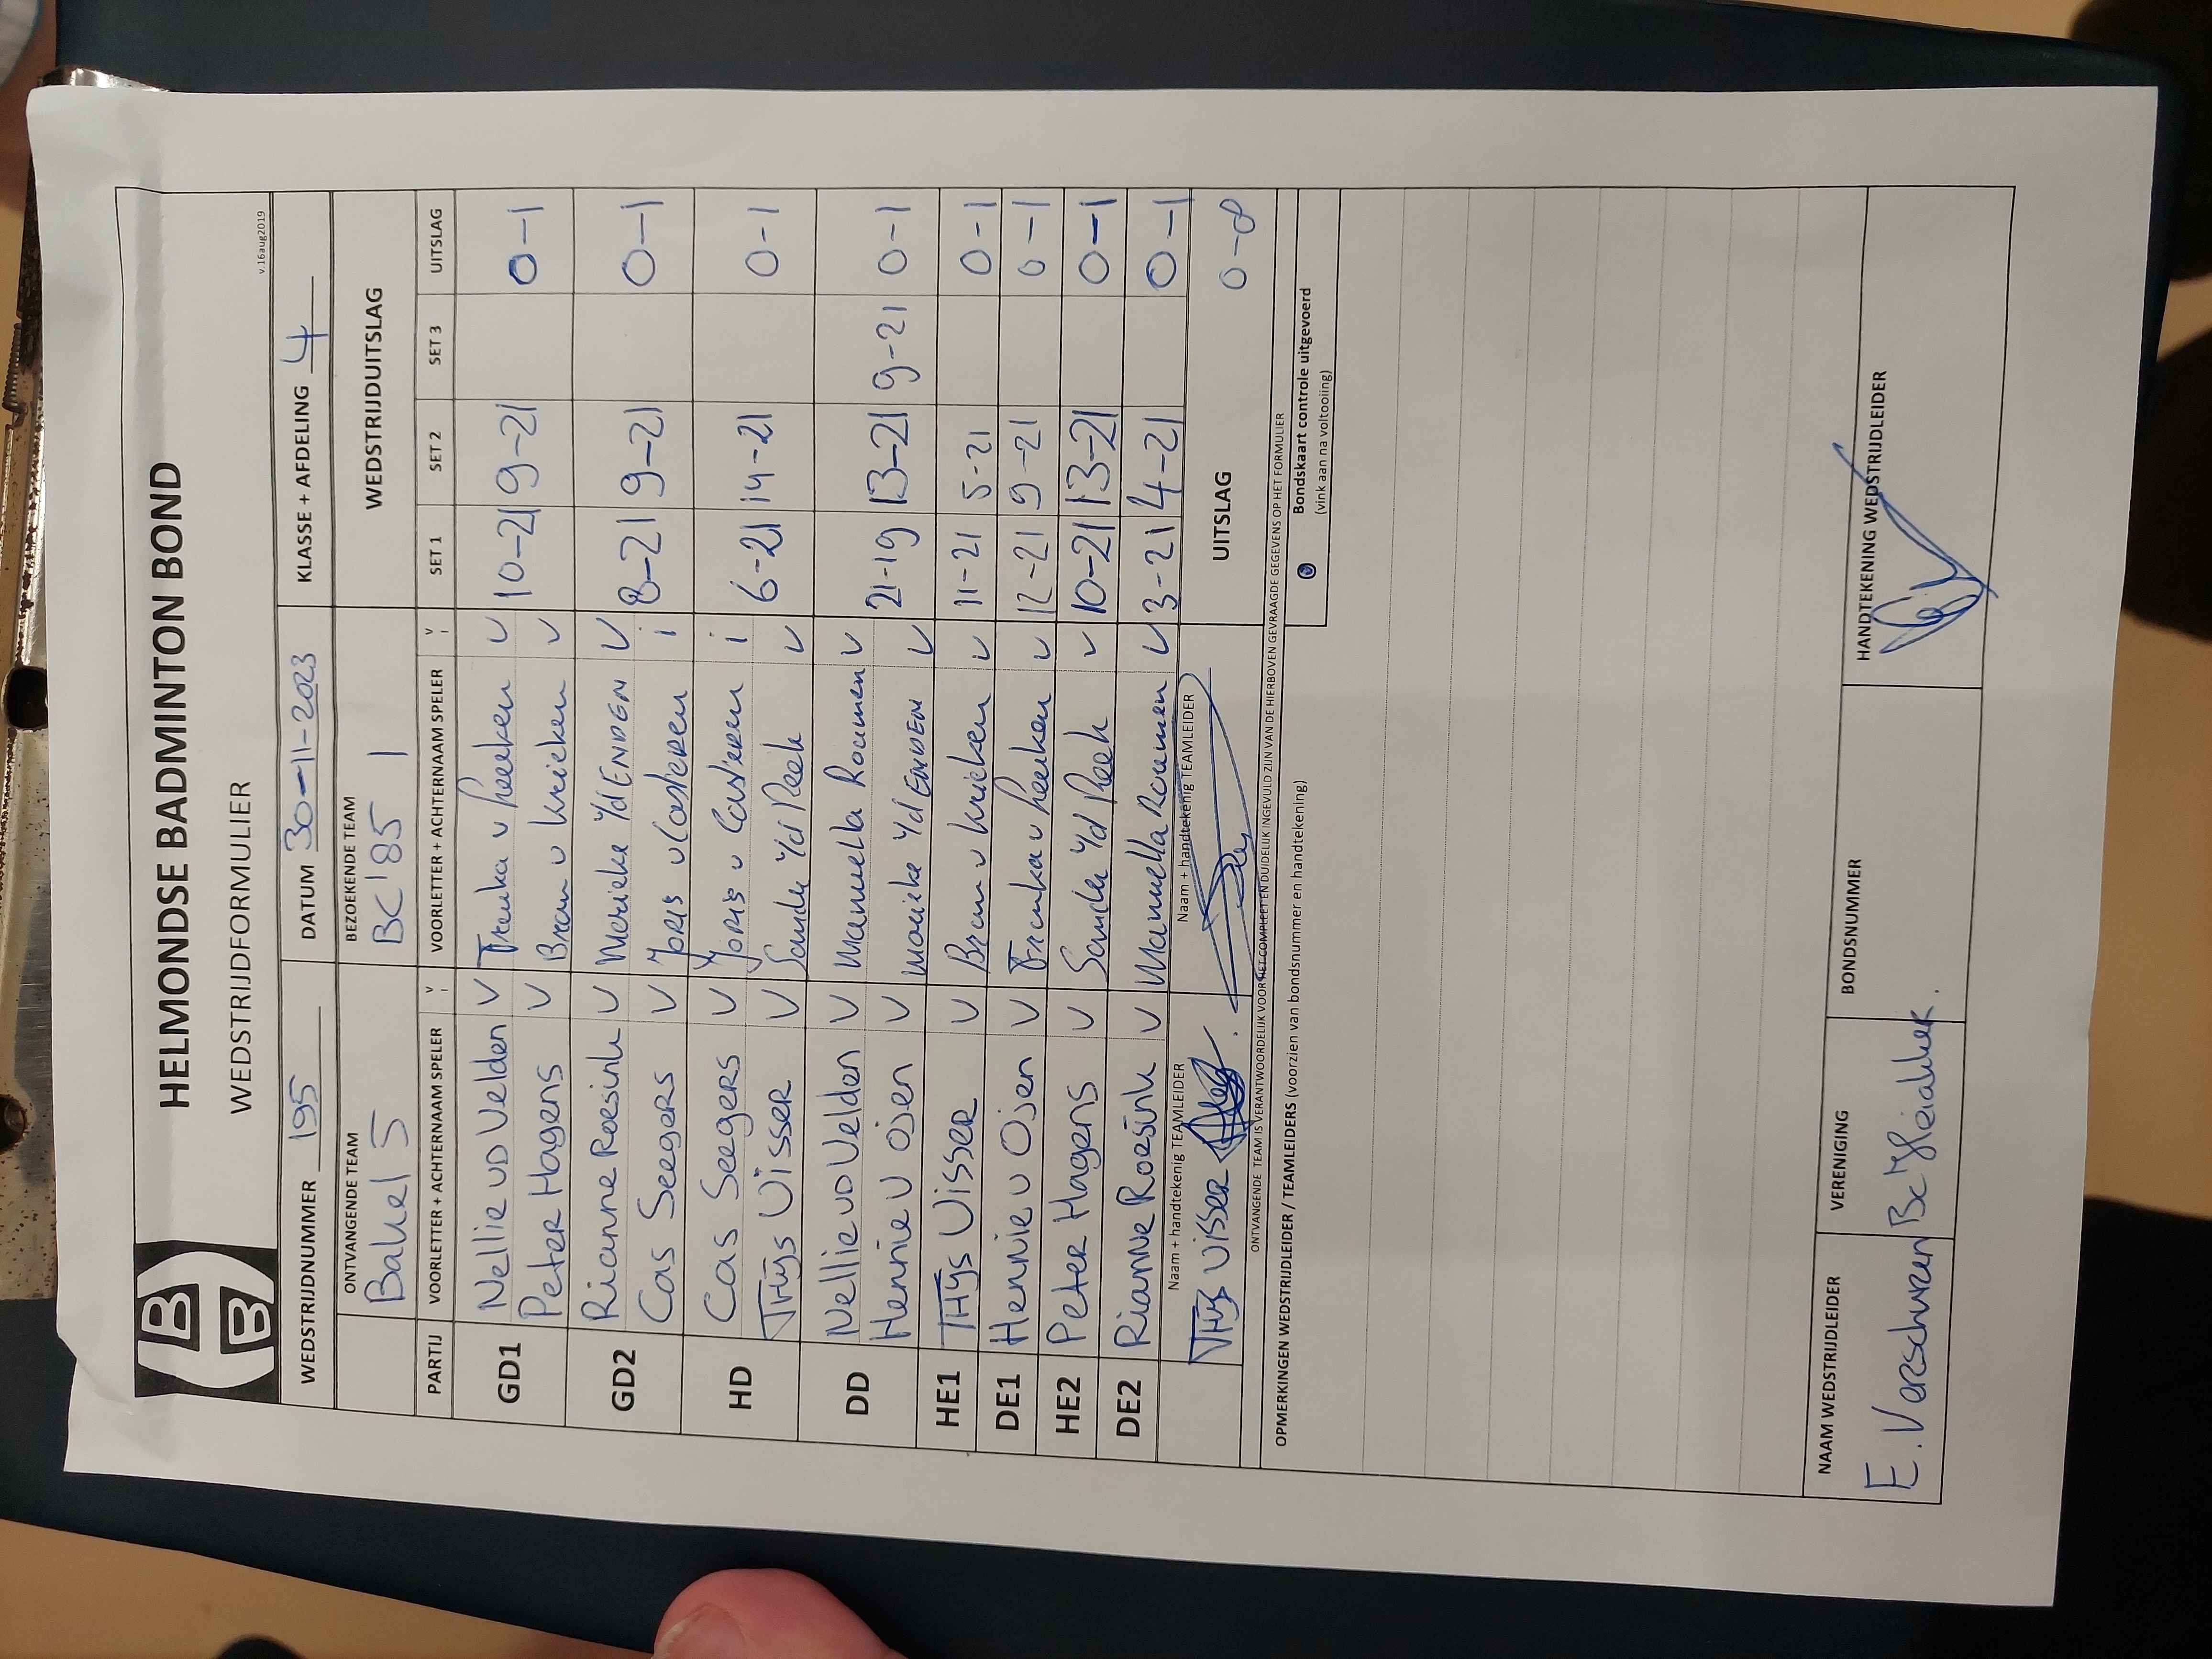 HELMONDSE BADMINTON BOND
WEDSTRIJDFORMULIER
v.16aug2019
WEDSTRIJDNUMMER 195 DATUM 30-11-2023 KLASSE + AFDELING 4
ONTVANGENDE TEAM BEZOEKENDE TEAM WEDSTRIJDUITSLAG
Bakel 5 BC'85 1
PARTIJ VOORLETTER + ACHTERNAAM SPELER V i VOORLETTER + ACHTERNAAM SPELER V i SET 1 SET 2 SET 3 UITSLAG
GD1 Nellie vD Velden V Franka v Leeken V 10-21 9-21 0-1
Peter Hagens V Bram v Kricken V
GD2 Rianne Roesink V Marieke v/d ENDEN V 8-21 9-21 0-1
Cas Seegers V Joris v Casteren i
HD Cas Seegers V Joris v Casteren i 6-21 14-21 0-1
THijs Visser V Sander v/d Reek V
DD Nellie vD Velden V Manuella Roumen V 21-19 13-21 9-21 0-1
Hennie v Osen V Marieke v/d ENDEN V
HE1 THijs Visser V Bram v Kricken V 11-21 5-21 0-1
DE1 Hennie v Osen V Franka v Leeken V 12-21 9-21 0-1
HE2 Peter Hagens V Sander v/d Reek V 10-21 13-21 0-1
DE2 Rianne Roesink V Manuella Roumen V 3-21 4-21 0-1
Naam + handtekenig TEAMLEIDER Naam + handtekenig TEAMLEIDER UITSLAG 0-8
THijs Visser
ONTVANGENDE TEAM IS VERANTWOORDELIJK VOOR HET COMPLEET EN DUIDELIJK INGEVULD ZIJN VAN DE HIERBOVEN GEVRAAGDE GEGEVENS OP HET FORMULIER
OPMERKINGEN WEDSTRIJDLEIDER / TEAMLEIDERS (voorzien van bondsnummer en handtekening)
Bondskaart controle uitgevoerd
(vink aan na voltooiing)
NAAM WEDSTRIJDLEIDER VERENIGING BONDSNUMMER HANDTEKENING WEDSTRIJDLEIDER
E. Verschuren BC Meiakker.